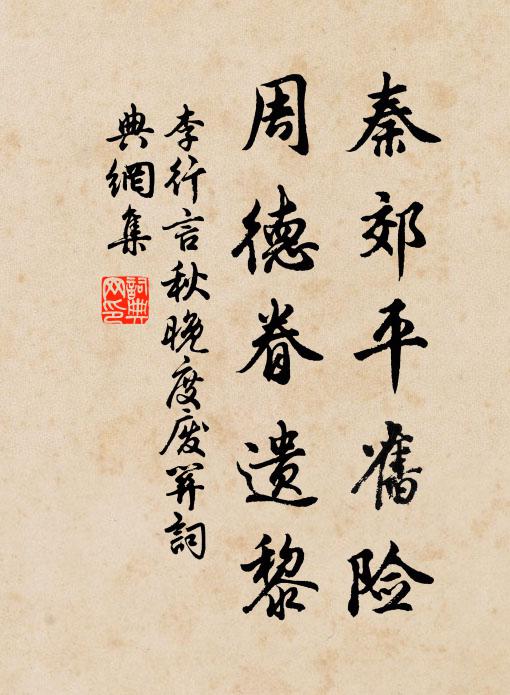 秦郊平舊险
周德眷遗黎
李行言秋晚度废关詞
典網集
詞典
网印